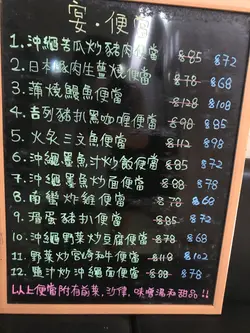 宴·便當
1. 沖繩苦瓜炒豬肉便當 $85 $72
2. 日本豚肉生薑燒便當 $78 $68
3. 蒲燒鰻魚便當 $128 $108
4. 吉列豬扒黑咖喱便當 $98 $85
5. 火炙三文魚便當 $98 $85
6. 沖繩墨魚汁炒飯便當 $85 $72
7. 沖繩墨魚炒面便當 $88 $78
8. 南蠻炸雞便當 $78 $68
9. 滑蛋豬扒便當 $85 $72
10. 沖繩野菜炒豆腐便當 $78 $68
11. 野菜炒宮崎和牛便當 $112 $102
12. 鹽汁炒沖繩面便當 $88 $78
以上便當附有前菜,沙律,味噌湯和甜品!!